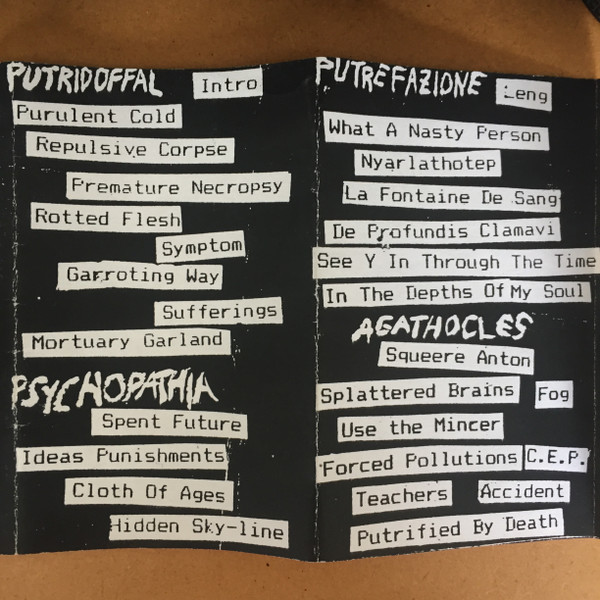 PUTRIDOFFAL
Intro
Purulent Cold
Repulsive Corpse
Premature Necropsy
Rotted Flesh
Symptom
Garroting Way
Sufferings
Mortuary Garland
PSYCHOPATHIA
Spent Future
Ideas Punishments
Cloth Of Ages
Hidden Sky-line
PUTREFAZIONE
Leng
What A Nasty Person
Nyarlathotep
La Fontaine De Sang
De Profundis Clamavi
See Y In Through The Time
In The Depths Of My Soul
AGATHOCLES
Squeere Anton
Splattered Brains
Fog
Use the Mincer
Forced Pollutions
C.E.P.
Teachers
Accident
Putrified By Death